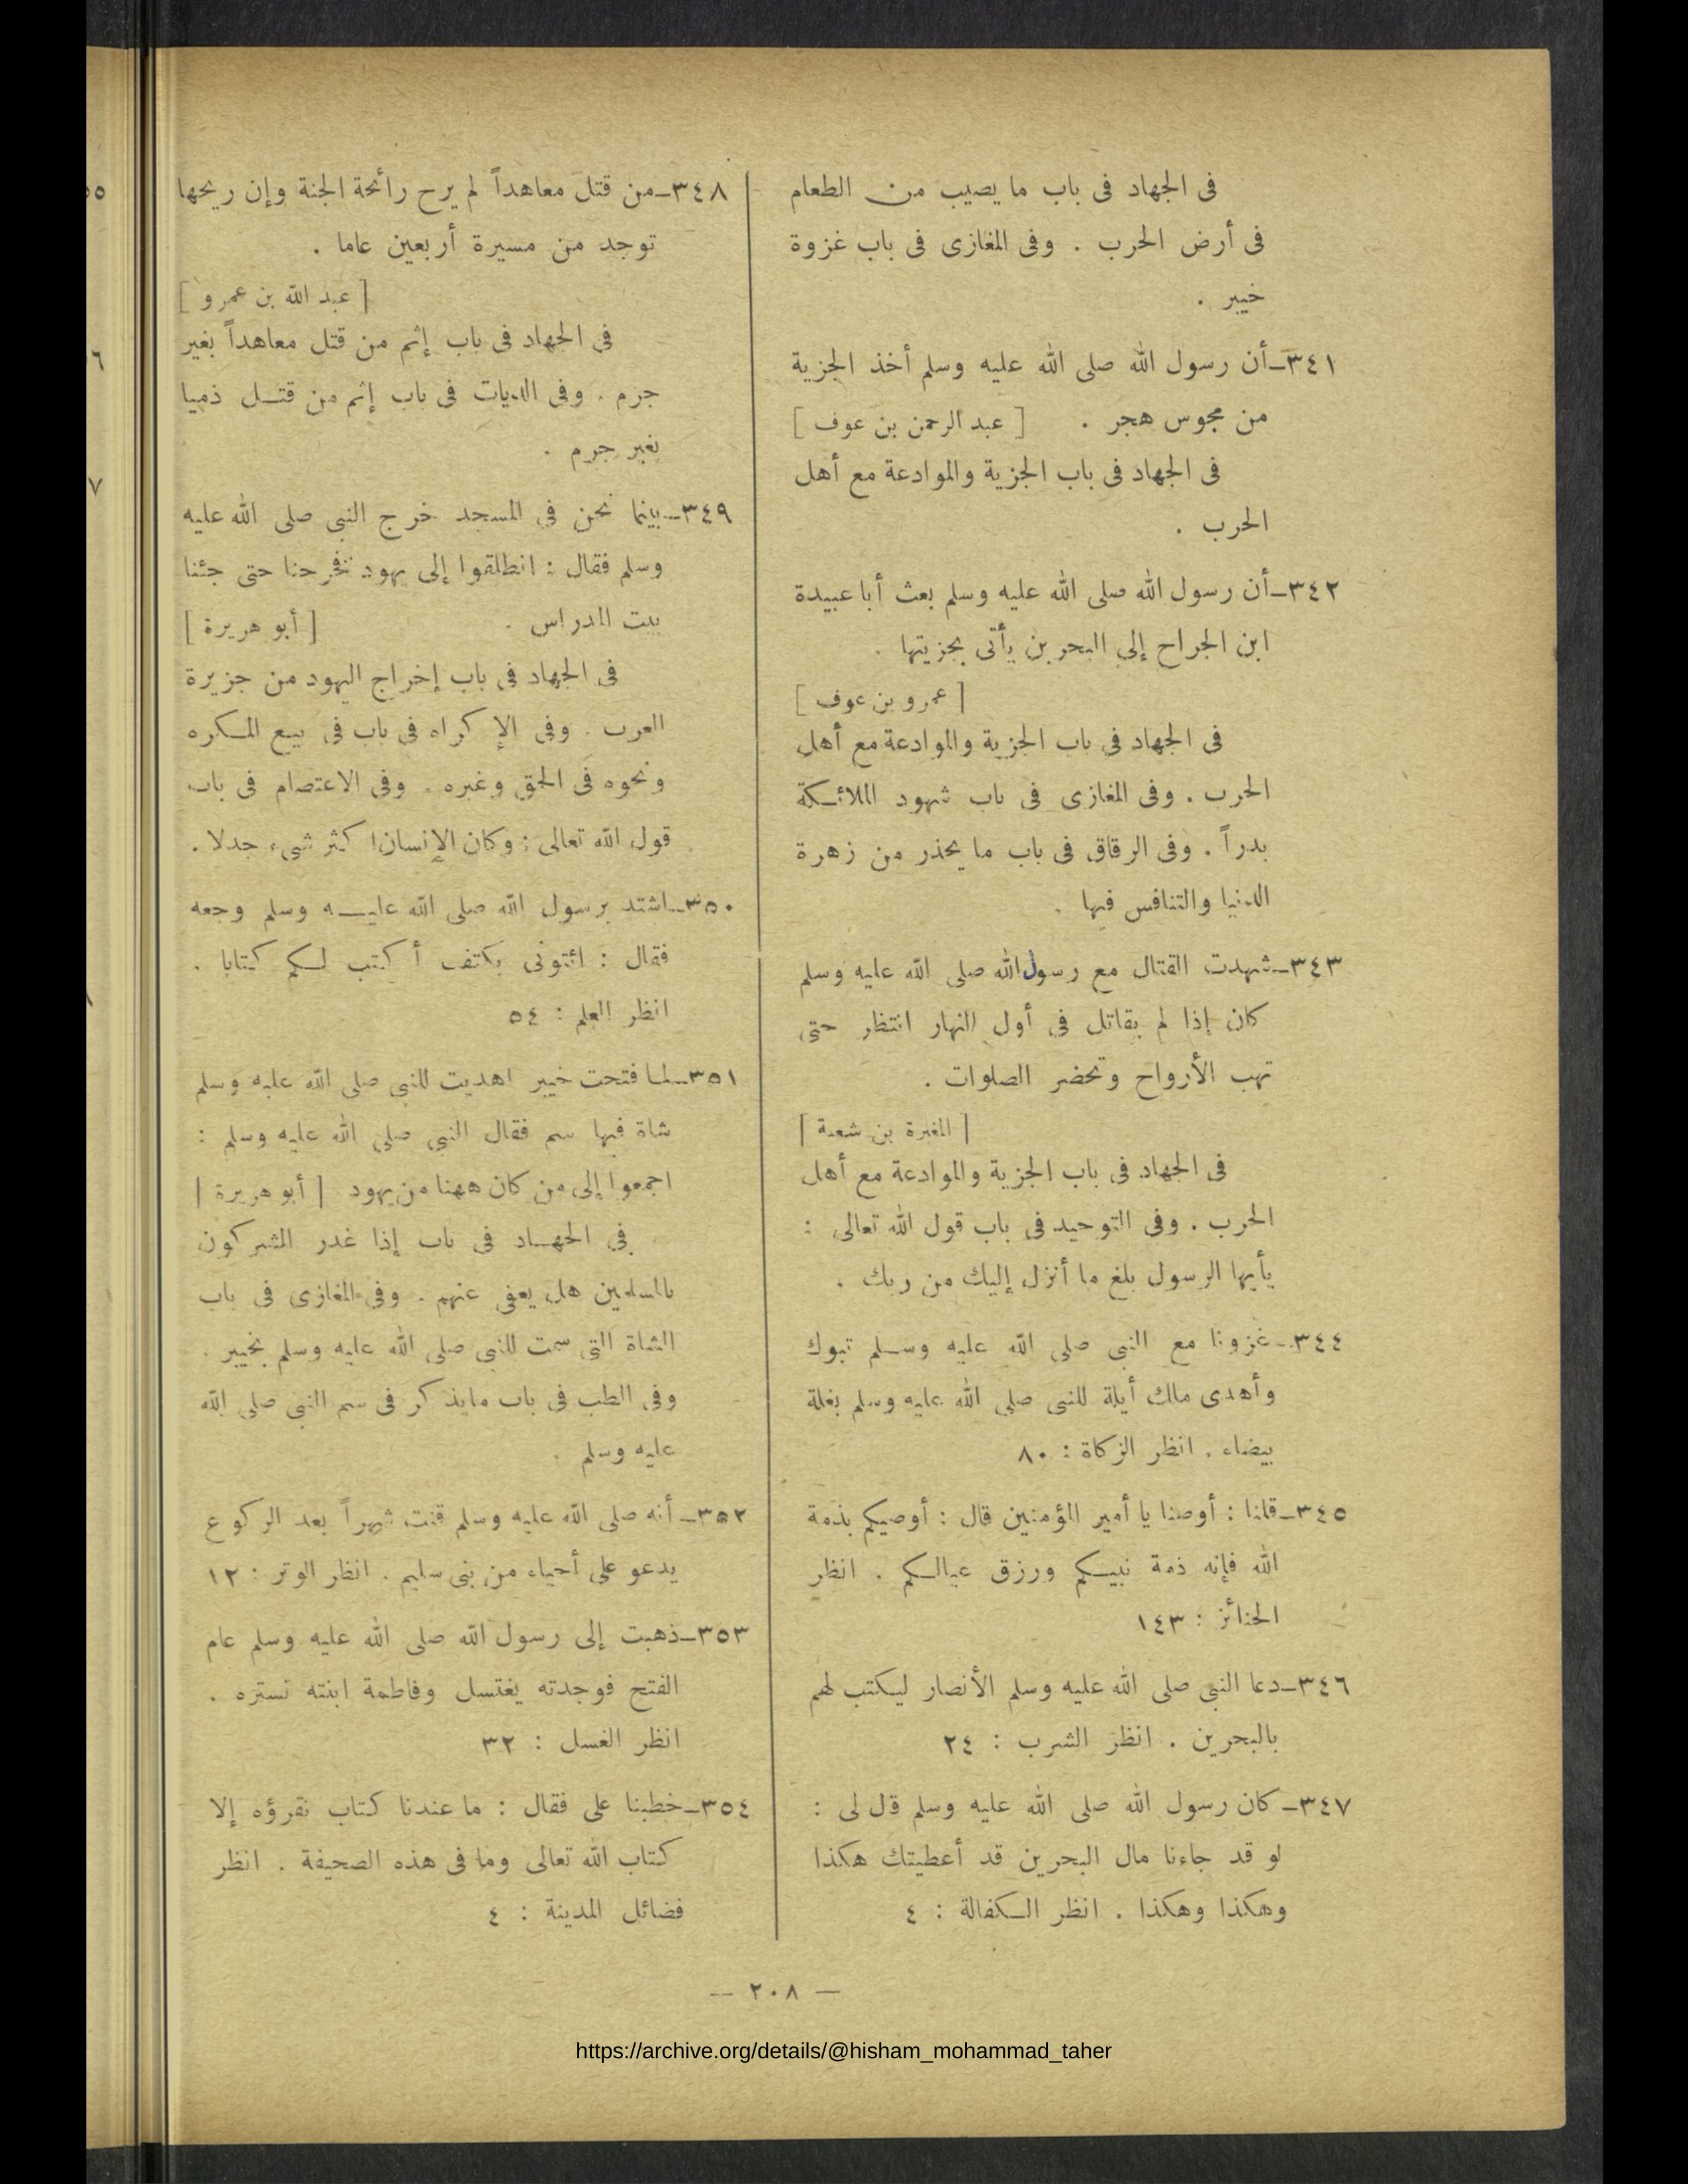 فى الجهاد فى باب ما يصيب من الطعام
فى أرض الحرب . وفى المغازى فى باب غزوة
خيبر .
٣٤١ـ أن رسول الله صلى الله عليه وسلم أخذ الجزية
من مجوس هجر . [ عبد الرحمن بن عوف ]
فى الجهاد فى باب الجزية والموادعة مع أهل
الحرب .
٣٤٢ـ أن رسول الله صلى الله عليه وسلم بعث أبا عبيدة
ابن الجراح إلى البحرين يأتى بجزيتها .
[ عمرو بن عوف ]
فى الجهاد فى باب الجزية والموادعة مع أهل
الحرب . وفى المغازى فى باب شهود الملائكة
بدراً . وفى الرقاق فى باب ما يحذر من زهرة
الدنيا والتنافس فيها .
٣٤٣ـ شهدت القتال مع رسول الله صلى الله عليه وسلم
كان إذا لم يقاتل فى أول النهار انتظر حتى
تهب الأرواح وتحضر الصلوات .
[ المغيرة بن شعبة ]
فى الجهاد فى باب الجزية والموادعة مع أهل
الحرب . وفى التوحيد فى باب قول الله تعالى :
يأيها الرسول بلغ ما أنزل إليك من ربك .
٣٤٤ـ غزونا مع النبى صلى الله عليه وسلم تبوك
وأهدى ملك أيلة للنبى صلى الله عليه وسلم بغلة
بيضاء . انظر الزكاة : ٨٠
٣٤٥ـ قلنا : أوصنا يا أمير المؤمنين قال : أوصيكم بذمة
الله فإنه ذمة نبيكم ورزق عيالكم . انظر
الجنائز : ١٤٣
٣٤٦ـ دعا النبى صلى الله عليه وسلم الأنصار ليكتب لهم
بالبحرين . انظر الشرب : ٢٤
٣٤٧ـ كان رسول الله صلى الله عليه وسلم قال لى :
لو قد جاءنا مال البحرين قد أعطيتك هكذا
وهكذا وهكذا . انظر الكفالة : ٤
٣٤٨ـ من قتل معاهداً لم يرح رائحة الجنة وإن ريحها
توجد من مسيرة أربعين عاما .
[ عبد الله بن عمرو ]
فى الجهاد فى باب إثم من قتل معاهداً بغير
جرم . وفى الديات فى باب إثم من قتل ذميا
بغير جرم .
٣٤٩ـ بينما نحن فى المسجد خرج النبى صلى الله عليه
وسلم فقال : انطلقوا إلى يهود فخرجنا حتى جئنا
بيت المدراس . [ أبو هريرة ]
فى الجهاد فى باب إخراج اليهود من جزيرة
العرب . وفى الإكراه فى باب فى بيع المكره
ونحوه فى الحق وغيره . وفى الاعتصام فى باب
قول الله تعالى : وكان الإنسان أكثر شىء جدلا .
٣٥٠ـ اشتد برسول الله صلى الله عليه وسلم وجعه
فقال : ائتونى بكتف أكتب لكم كتابا .
انظر العلم : ٥٤
٣٥١ـ لما فتحت خيبر اهديت للنبى صلى الله عليه وسلم
شاة فيها سم فقال النبى صلى الله عليه وسلم :
اجمعوا إلى من كان ههنا من يهود [ أبو هريرة ]
فى الجهاد فى باب إذا غدر المشركون
بالمسلمين هل يعفى عنهم . وفى المغازى فى باب
الشاة التى سمت للنبى صلى الله عليه وسلم بخيبر .
وفى الطب فى باب ما يذكر فى سم النبى صلى الله
عليه وسلم .
٣٥٢ـ أنه صلى الله عليه وسلم قنت شهراً بعد الركوع
يدعو على أحياء من بنى سليم . انظر الوتر : ١٢
٣٥٣ـ ذهبت إلى رسول الله صلى الله عليه وسلم عام
الفتح فوجدته يغتسل وفاطمة ابنته تستره .
انظر الغسل : ٣٢
٣٥٤ـ خطبنا على فقال : ما عندنا كتاب نقرؤه إلا
كتاب الله تعالى وما فى هذه الصحيفة . انظر
فضائل المدينة : ٤
— ٢٠٨ —
https://archive.org/details/@hisham_mohammad_taher